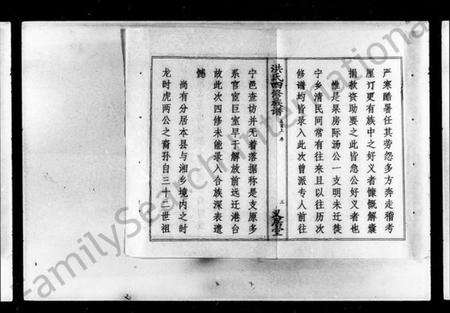 严寒酷暑任其劳怨多方奔走稽考
厘订更有族中之好义者慷慨解囊
捐款资助要之此皆急公好义者也
惟是泉房际汤公一支明末迁徙
宁乡清民间常有往来且以往历次
修谱均皆录入此次曾派专人前往
洪氏四修族谱
宁邑查访并无着落据称是支原多
系官宦巨室早于解放前远迁港台
故此次四修未能录入合族深表遗
憾
尚有分居本县与湘乡境内之时
龙时虎两公之裔孙自三十三世祖
FamilySearch International